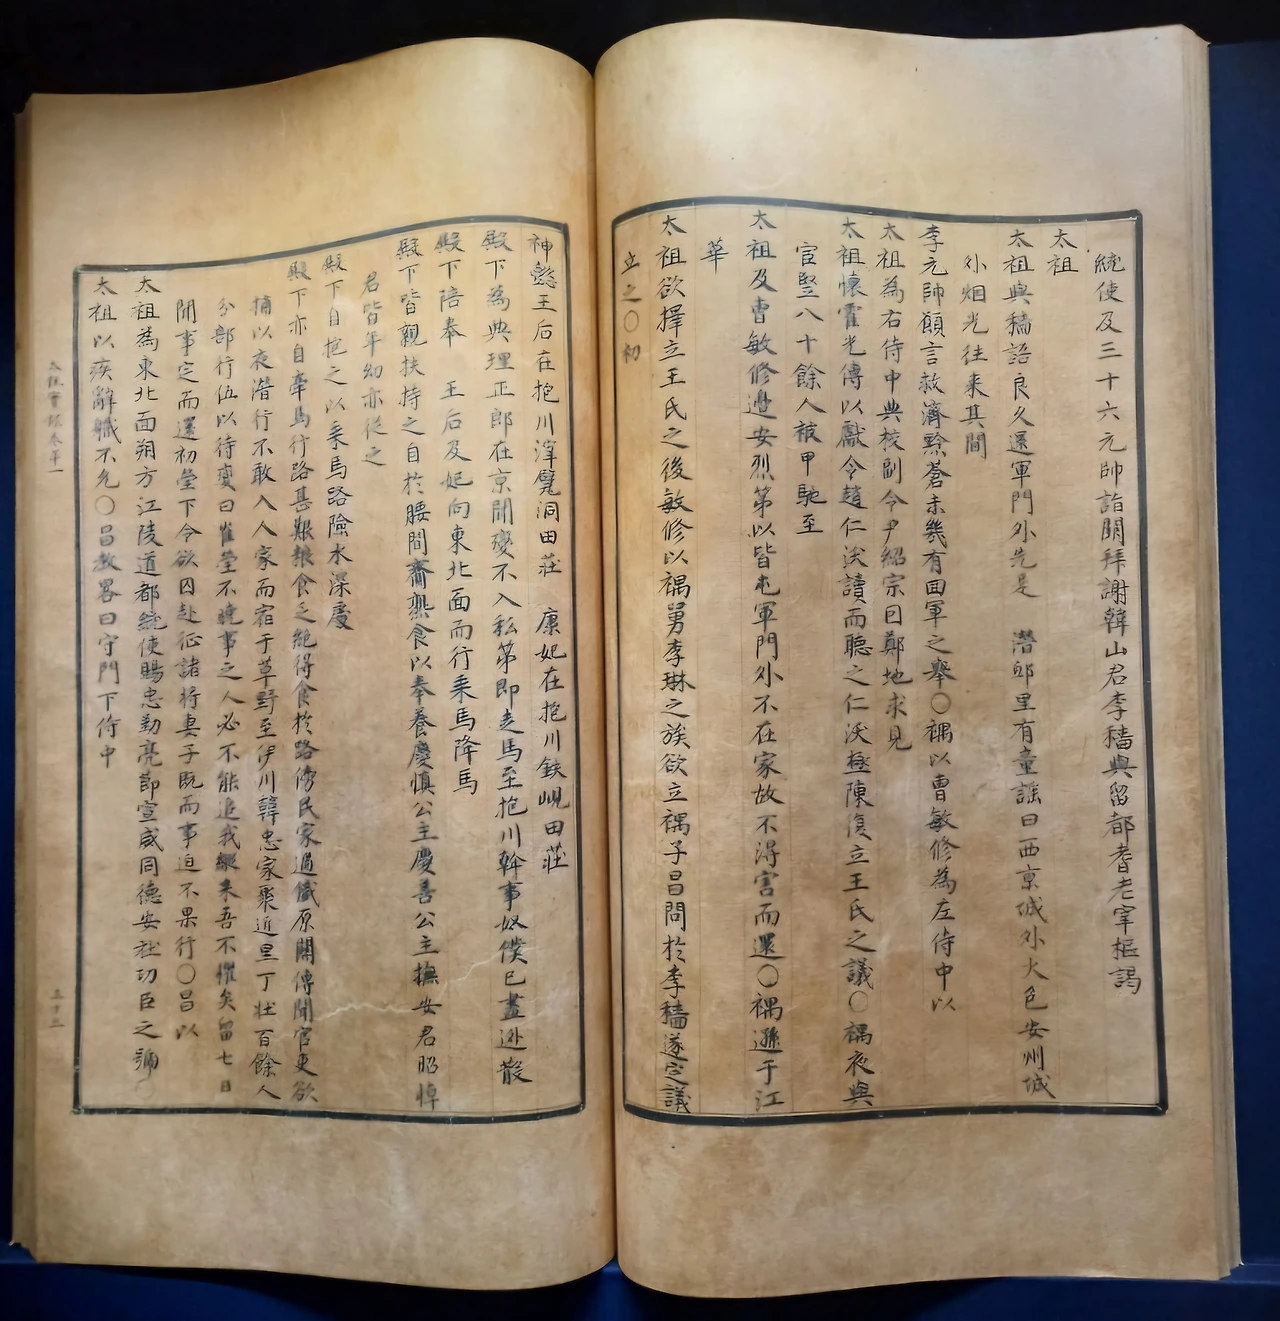 統使及三十六元帥詣闕拜謝韓山君李穡與留都耆老宰樞謁
太祖
太祖與穡語良久還軍門外先是 潛邸里有童謠曰西京城外火色安州城
外烟光往来其間
李元帥願言救濟黔蒼未幾有回軍之舉○禑以曹敏修為左侍中以
太祖為右侍中典校副令尹紹宗因鄭地求見
太祖懷霍光傳以獻令趙仁沃讀而聽之仁沃極陳復立王氏之議○禑夜與
宦豎八十餘人被甲馳至
太祖及曹敏修邊安烈第以皆屯軍門外不在家故不得害而還○禑遜于江
華
太祖欲擇立王氏之後敏修以禑舅李琳之族欲立禑子昌問於李穡遂定議
立之○初
神懿王后在抱川滓甓洞田莊 康妃在抱川鉄峴田莊
殿下為典理正郎在京聞變不入私第即走馬至抱川幹事奴僕已盡逃散
殿下陪奉 王后及妃向東北面而行乘馬降馬
殿下皆親扶持之自於腰間齎熟食以奉養慶愼公主慶善公主撫安君昭悼
君皆年幼亦從之
殿下自抱之以乘馬路險水深慶
殿下亦自牽馬行路甚艱粮食乏絶得食於路傍民家過鐵原關傳聞官吏欲
捕以夜潛行不敢入人家而宿于草野至伊川韓忠家聚近里丁壯百餘人
分部行伍以待變曰崔瑩不曉事之人必不能追我縱来吾不懼矣留七日
聞事定而還初瑩下令欲囚赴征諸將妻子既而事迫不果行○昌以
太祖為東北面朔方江陵道都統使賜忠勤亮節宣威同德安社功臣之號
太祖以疾辭職不允○昌教畧曰守門下侍中
太祖實錄卷第一
三十三